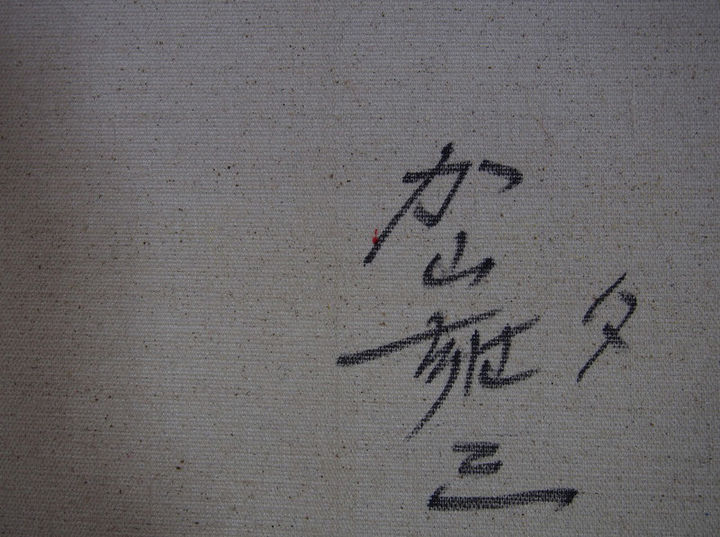 夕
加山雄三